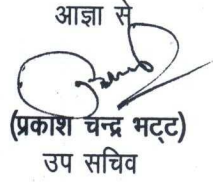 आज्ञा से
(प्रकाश चन्द्र भट्ट)
उप सचिव